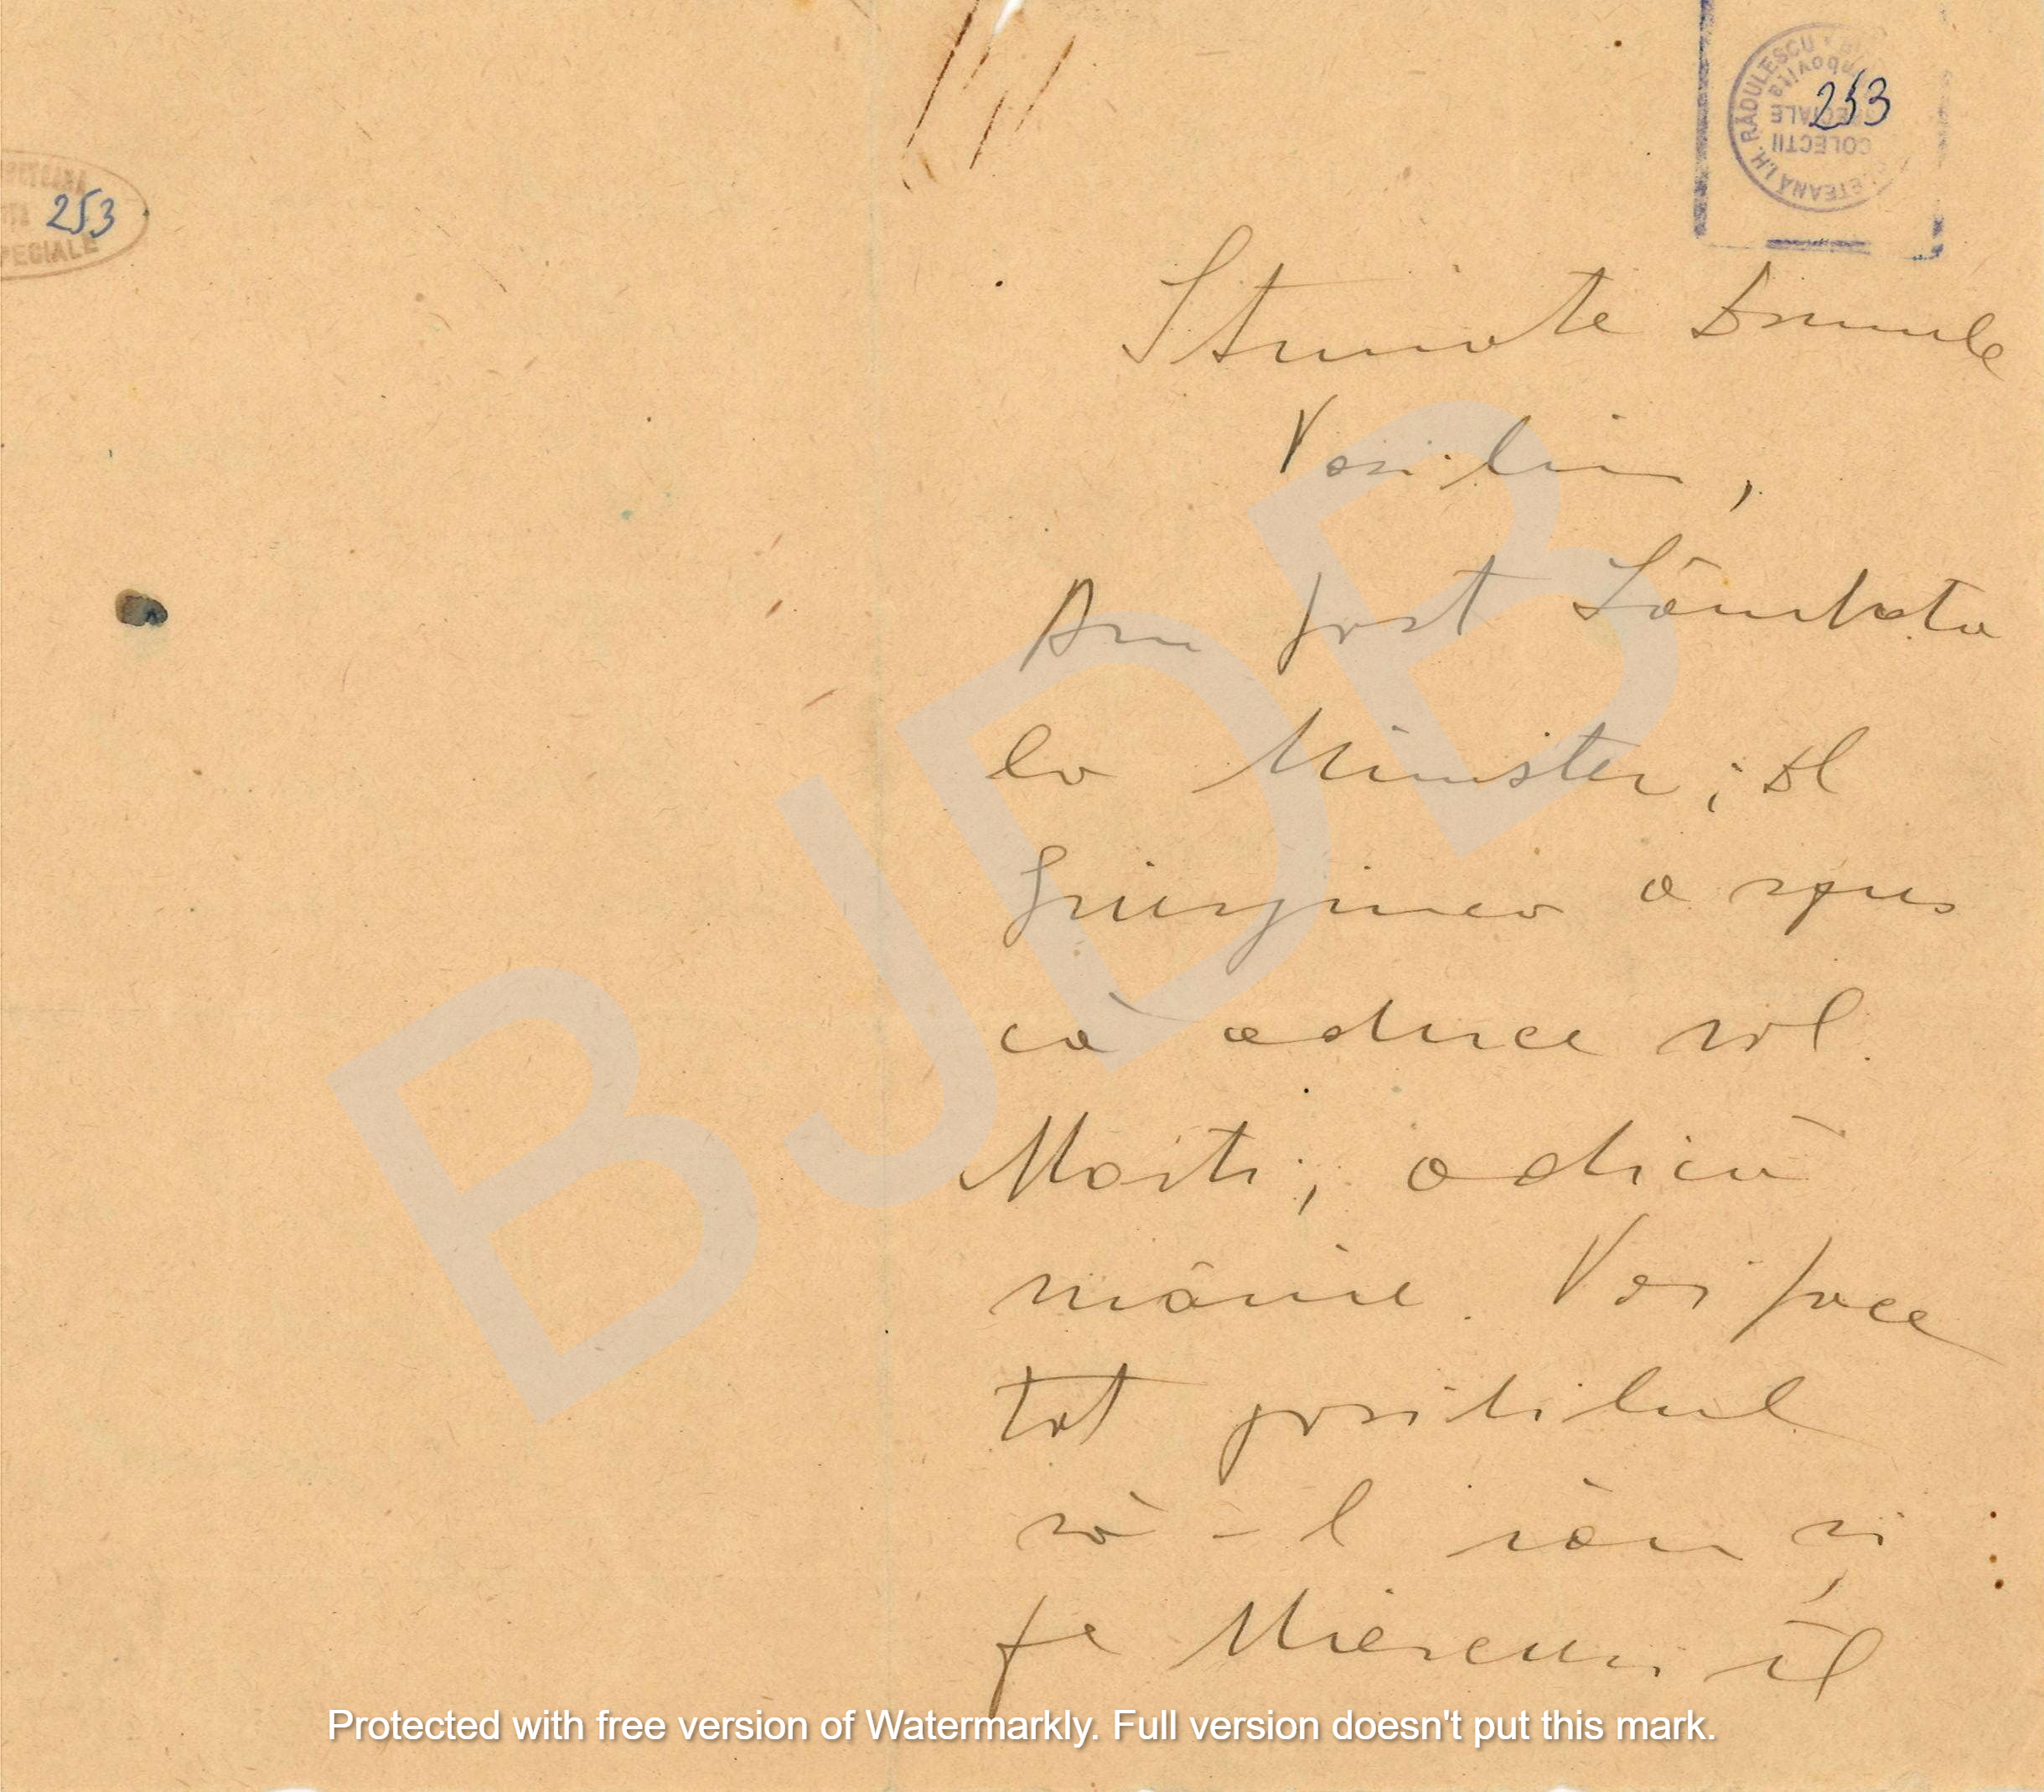 253
253
RĂDULESCU
COLECTII
SPECIALE
Stimate Domnule
Vasiliu,
Am fost Sâmbăta
la Minister; Dl
a spus
că aduce sol.
Marți, adică
mâine. Voi face
tot posibilul
să-l iau și
pe Miercuri îl
BJDB
Protected with free version of Watermarkly. Full version doesn't put this mark.